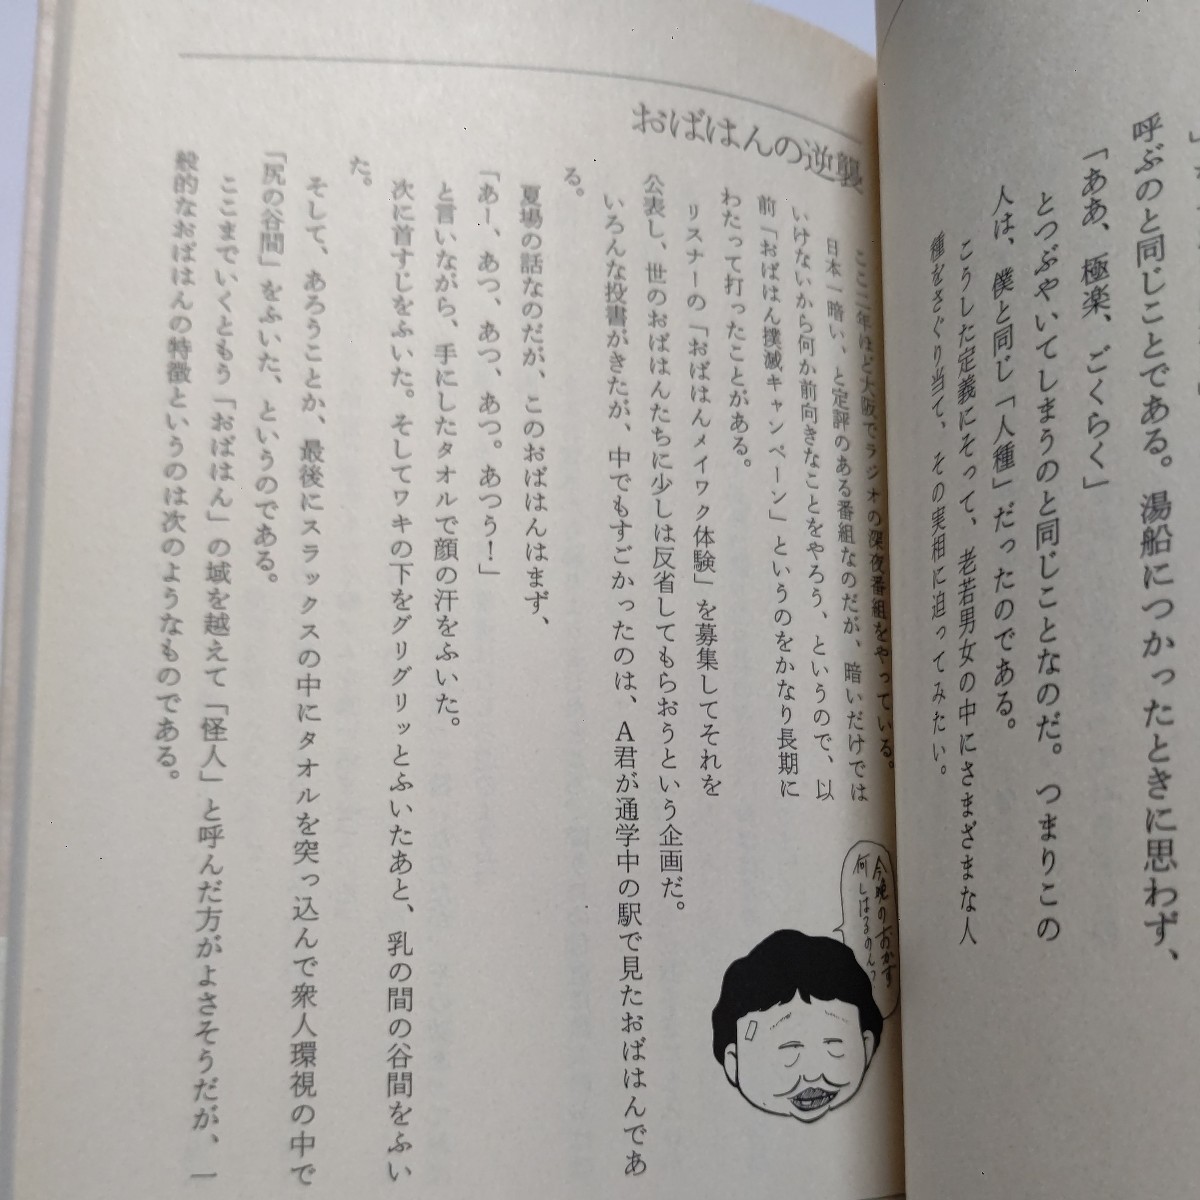 呼ぶのと同じことである。湯船につかったときに思わず、
「ああ、極楽、ごくらく」
とつぶやいてしまうのと同じことなのだ。つまりこの
人は、僕と同じ「人種」だったのである。
こうした定義にそって、老若男女の中にさまざまな人
種をさぐり当て、その実相に迫ってみたい。
おばはんの逆襲
ここ二年ほど大阪でラジオの深夜番組をやっている。
日本一暗い、と定評のある番組なのだが、暗いだけでは
いけないから何か前向きなことをやろう、というので、以
前「おばはん撲滅キャンペーン」というのをかなり長期に
わたって打ったことがある。
リスナーの「おばはんメイワク体験」を募集してそれを
公表し、世のおばはんたちに少しは反省してもらおうという企画だ。
いろんな投書がきたが、中でもすごかったのは、A君が通学中の駅で見たおばはんであ
る。
夏場の話なのだが、このおばはんはまず、
「あー、あつ、あつ、あつ。あつう！」
と言いながら、手にしたタオルで顔の汗をふいた。
次に首すじをふいた。そしてワキの下をグリグリッとふいたあと、乳の間の谷間をふい
た。
そして、あろうことか、最後にスラックスの中にタオルを突っ込んで衆人環視の中で
「尻の谷間」をふいた、というのである。
ここまでいくともう「おばはん」の域を越えて「怪人」と呼んだ方がよさそうだが、一
般的なおばはんの特徴というのは次のようなものである。
今晩のおかず
何しはるのんっ